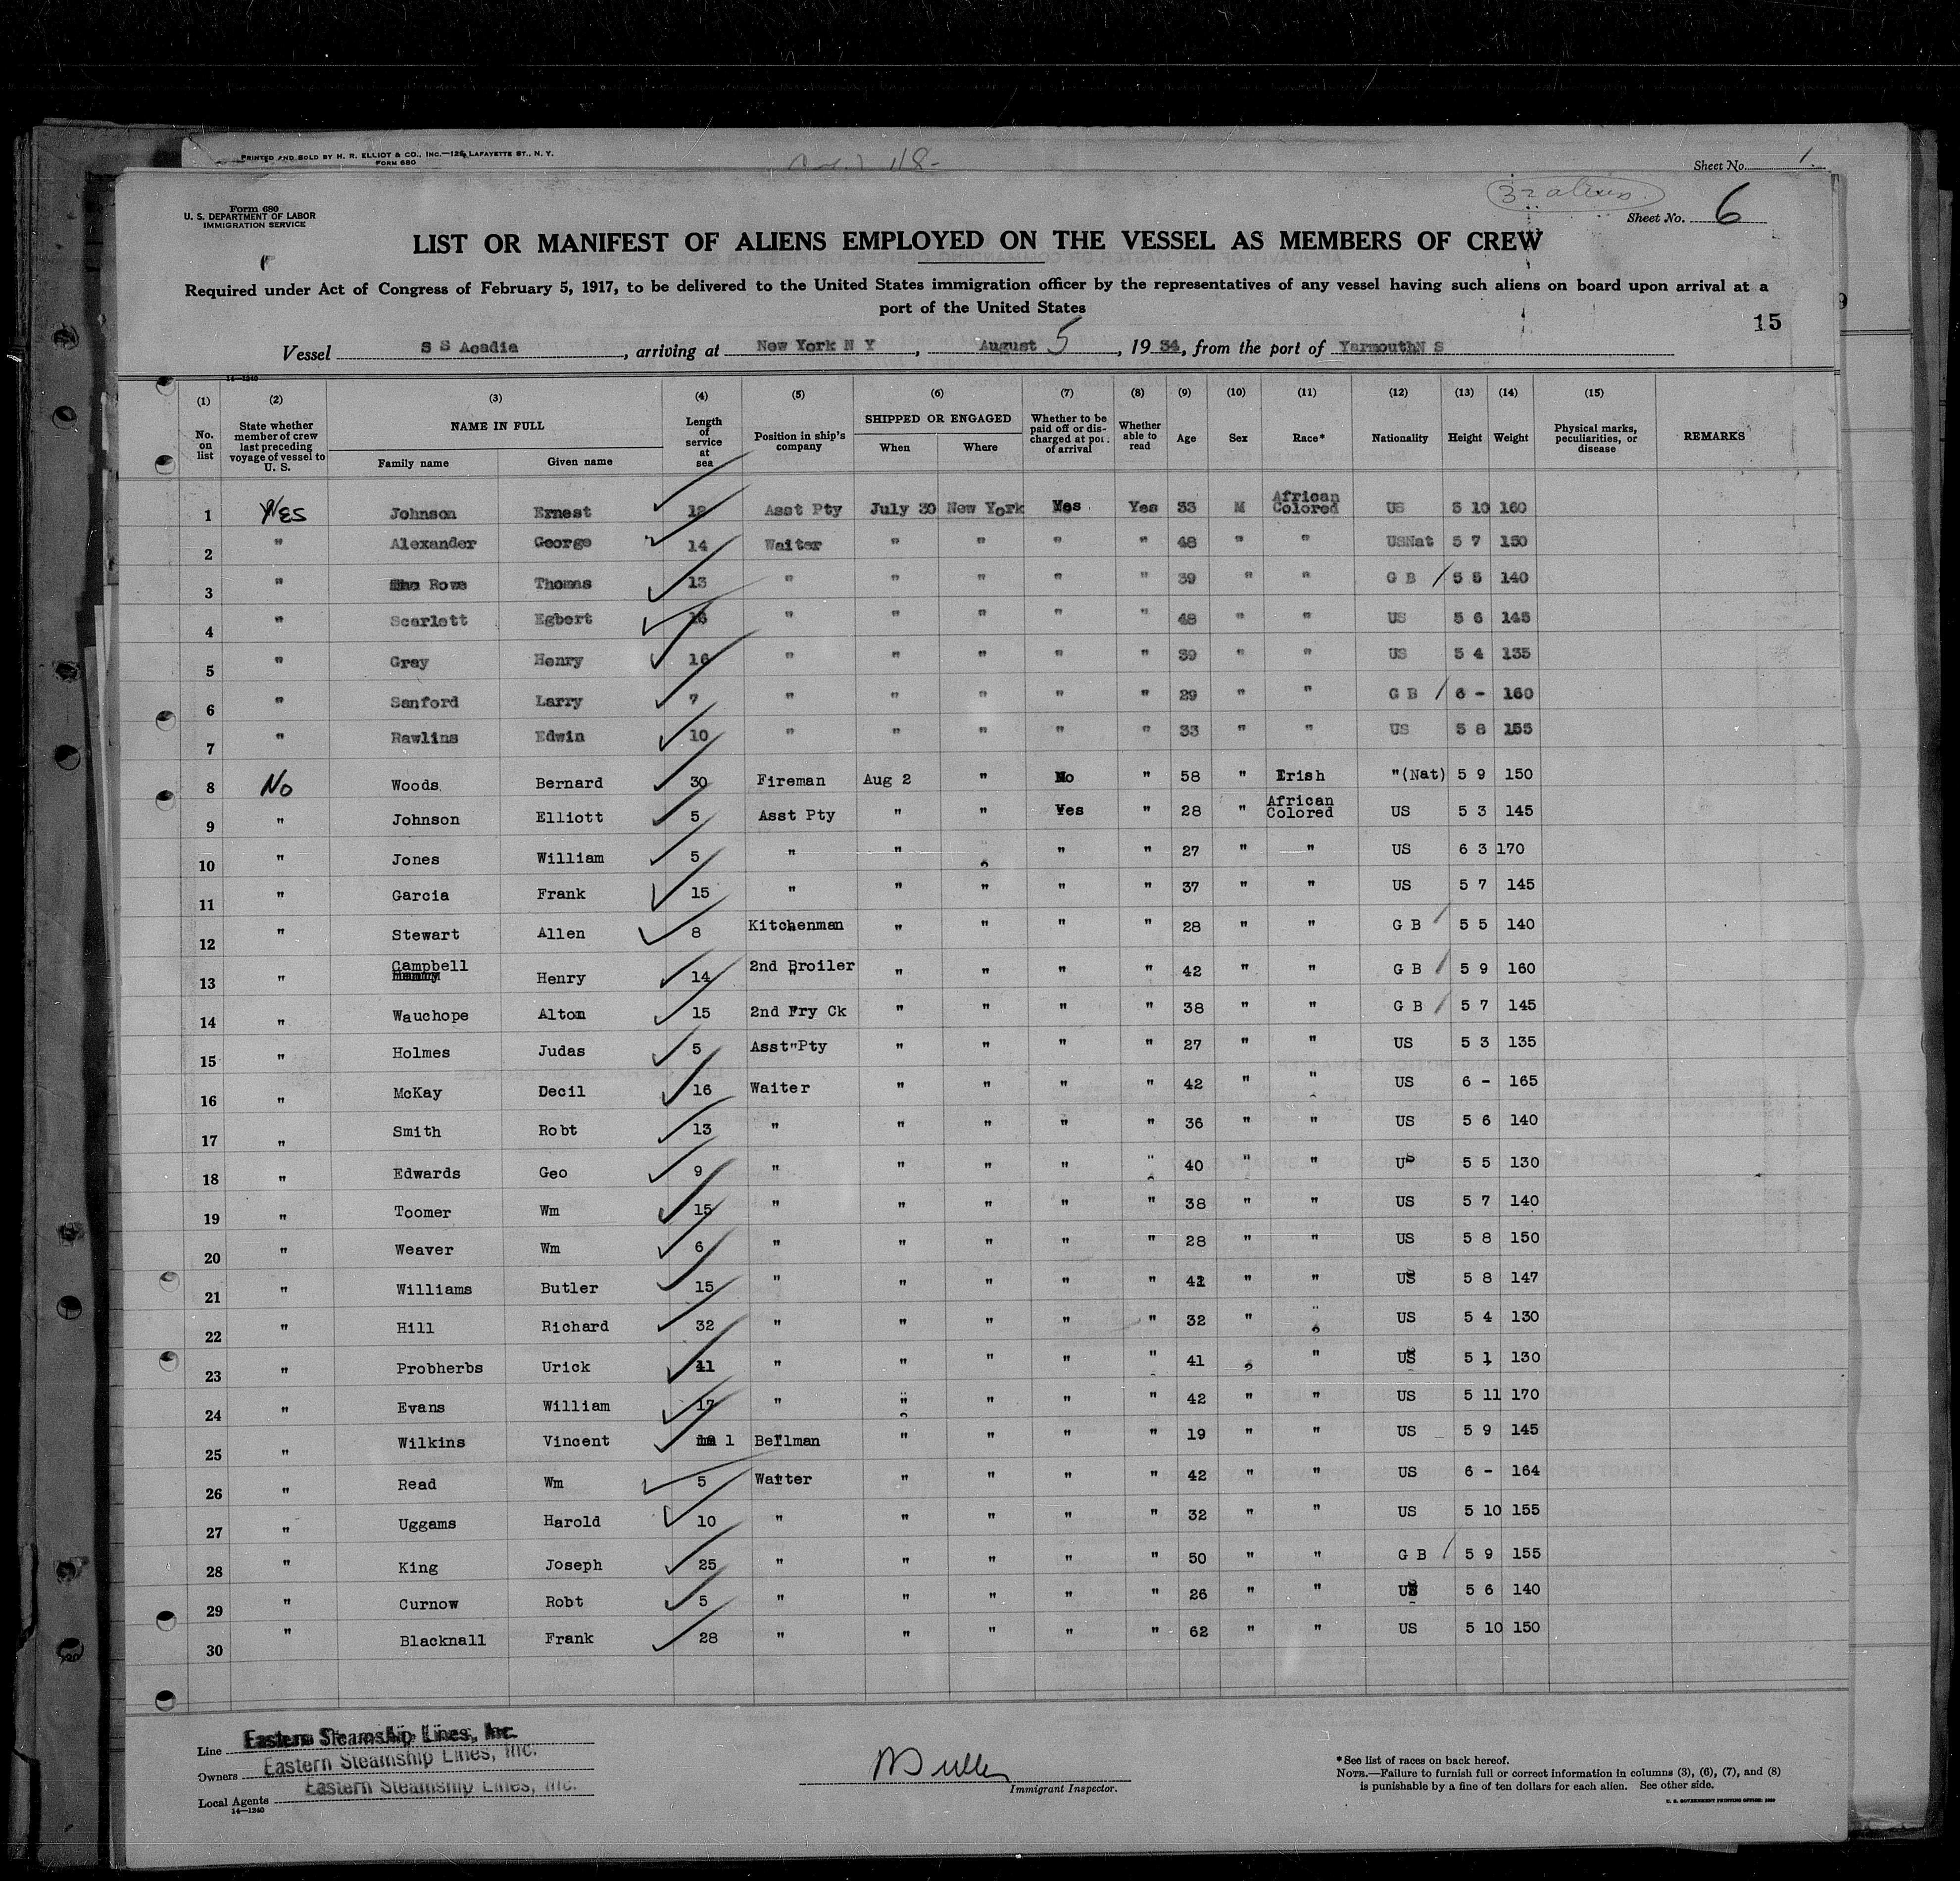 PRINTED AND SOLD BY H. R. ELLIOT & CO., INC.—125 LAFAYETTE ST., N. Y.
FORM 680
118-
Sheet No. 1
32 aliens
Form 680
U. S. DEPARTMENT OF LABOR
IMMIGRATION SERVICE
Sheet No. 6
LIST OR MANIFEST OF ALIENS EMPLOYED ON THE VESSEL AS MEMBERS OF CREW
Required under Act of Congress of February 5, 1917, to be delivered to the United States immigration officer by the representatives of any vessel having such aliens on board upon arrival at a
port of the United States
15
Vessel S S Acadia, arriving at New York N Y, August 5, 1934, from the port of Yarmouth N S
14—1240
(1) No. on list
(2) State whether member of crew last preceding voyage of vessel to U. S.
(3) NAME IN FULL Family name Given name
(4) Length of service at sea
(5) Position in ship's company
(6) SHIPPED OR ENGAGED When Where
(7) Whether to be paid off or discharged at port of arrival
(8) Whether able to read
(9) Age
(10) Sex
(11) Race*
(12) Nationality
(13) Height
(14) Weight
(15) Physical marks, peculiarities, or disease
REMARKS
1 Yes Johnson Ernest Asst Pty July 30 New York Yes Yes 33 M African Colored US 5 10 160
2 " Alexander George 14 Waiter " " " " 48 " " USNat 5 7 150
3 " Rowe Thomas 13 " " " " " 39 " " G B 5 5 140
4 " Scarlett Egbert 16 " " " " " 48 " " US 5 6 145
5 " Gray Henry 16 " " " " " 39 " " US 5 4 135
6 " Sanford Larry 7 " " " " " 29 " " G B 6 - 160
7 " Rawlins Edwin 10 " " " " " 33 " " US 5 8 155
8 No Woods Bernard 30 Fireman Aug 2 " No " 58 " Irish "(Nat) 5 9 150
9 " Johnson Elliott 5 Asst Pty " " Yes " 28 " African Colored US 5 3 145
10 " Jones William 5 " " " " " 27 " " US 6 3 170
11 " Garcia Frank 15 " " " " " 37 " " US 5 7 145
12 " Stewart Allen 8 Kitchenman " " " " 28 " " G B 5 5 140
13 " Campbell Henry 14 2nd Broiler " " " " 42 " " G B 5 9 160
14 " Wauchope Alton 15 2nd Fry Ck " " " " 38 " " G B 5 7 145
15 " Holmes Judas 5 Asst"Pty " " " " 27 " " US 5 3 135
16 " McKay Decil 16 Waiter " " " " 42 " " US 6 - 165
17 " Smith Robt 13 " " " " " 36 " " US 5 6 140
18 " Edwards Geo 9 " " " " " 40 " " US 5 5 130
19 " Toomer Wm 15 " " " " " 38 " " US 5 7 140
20 " Weaver Wm 6 " " " " " 28 " " US 5 8 150
21 " Williams Butler 15 " " " " " " " US 5 8 147
22 " Hill Richard 32 " " " " " 32 " " US 5 4 130
23 " Probherbs Urick 11 " " " " " 41 " " US 5 1 130
24 " Evans William 17 " " " " " 42 " " US 5 11 170
25 " Wilkins Vincent 1 Bellman " " " " 19 " " US 5 9 145
26 " Read Wm 5 Waiter " " " " 42 " " US 6 - 164
27 " Uggams Harold 10 " " " " " 32 " " US 5 10 155
28 " King Joseph 25 " " " " " 50 " " G B 5 9 155
29 " Curnow Robt 5 " " " " " 26 " " US 5 6 140
30 " Blacknall Frank 28 " " " " " 62 " " US 5 10 150
Line Eastern Steamship Lines, Inc.
Owners Eastern Steamship Lines, Inc.
Local Agents Eastern Steamship Lines, Inc.
14—1240
Immigrant Inspector.
*See list of races on back hereof.
NOTE.—Failure to furnish full or correct information in columns (3), (6), (7), and (8)
is punishable by a fine of ten dollars for each alien. See other side.